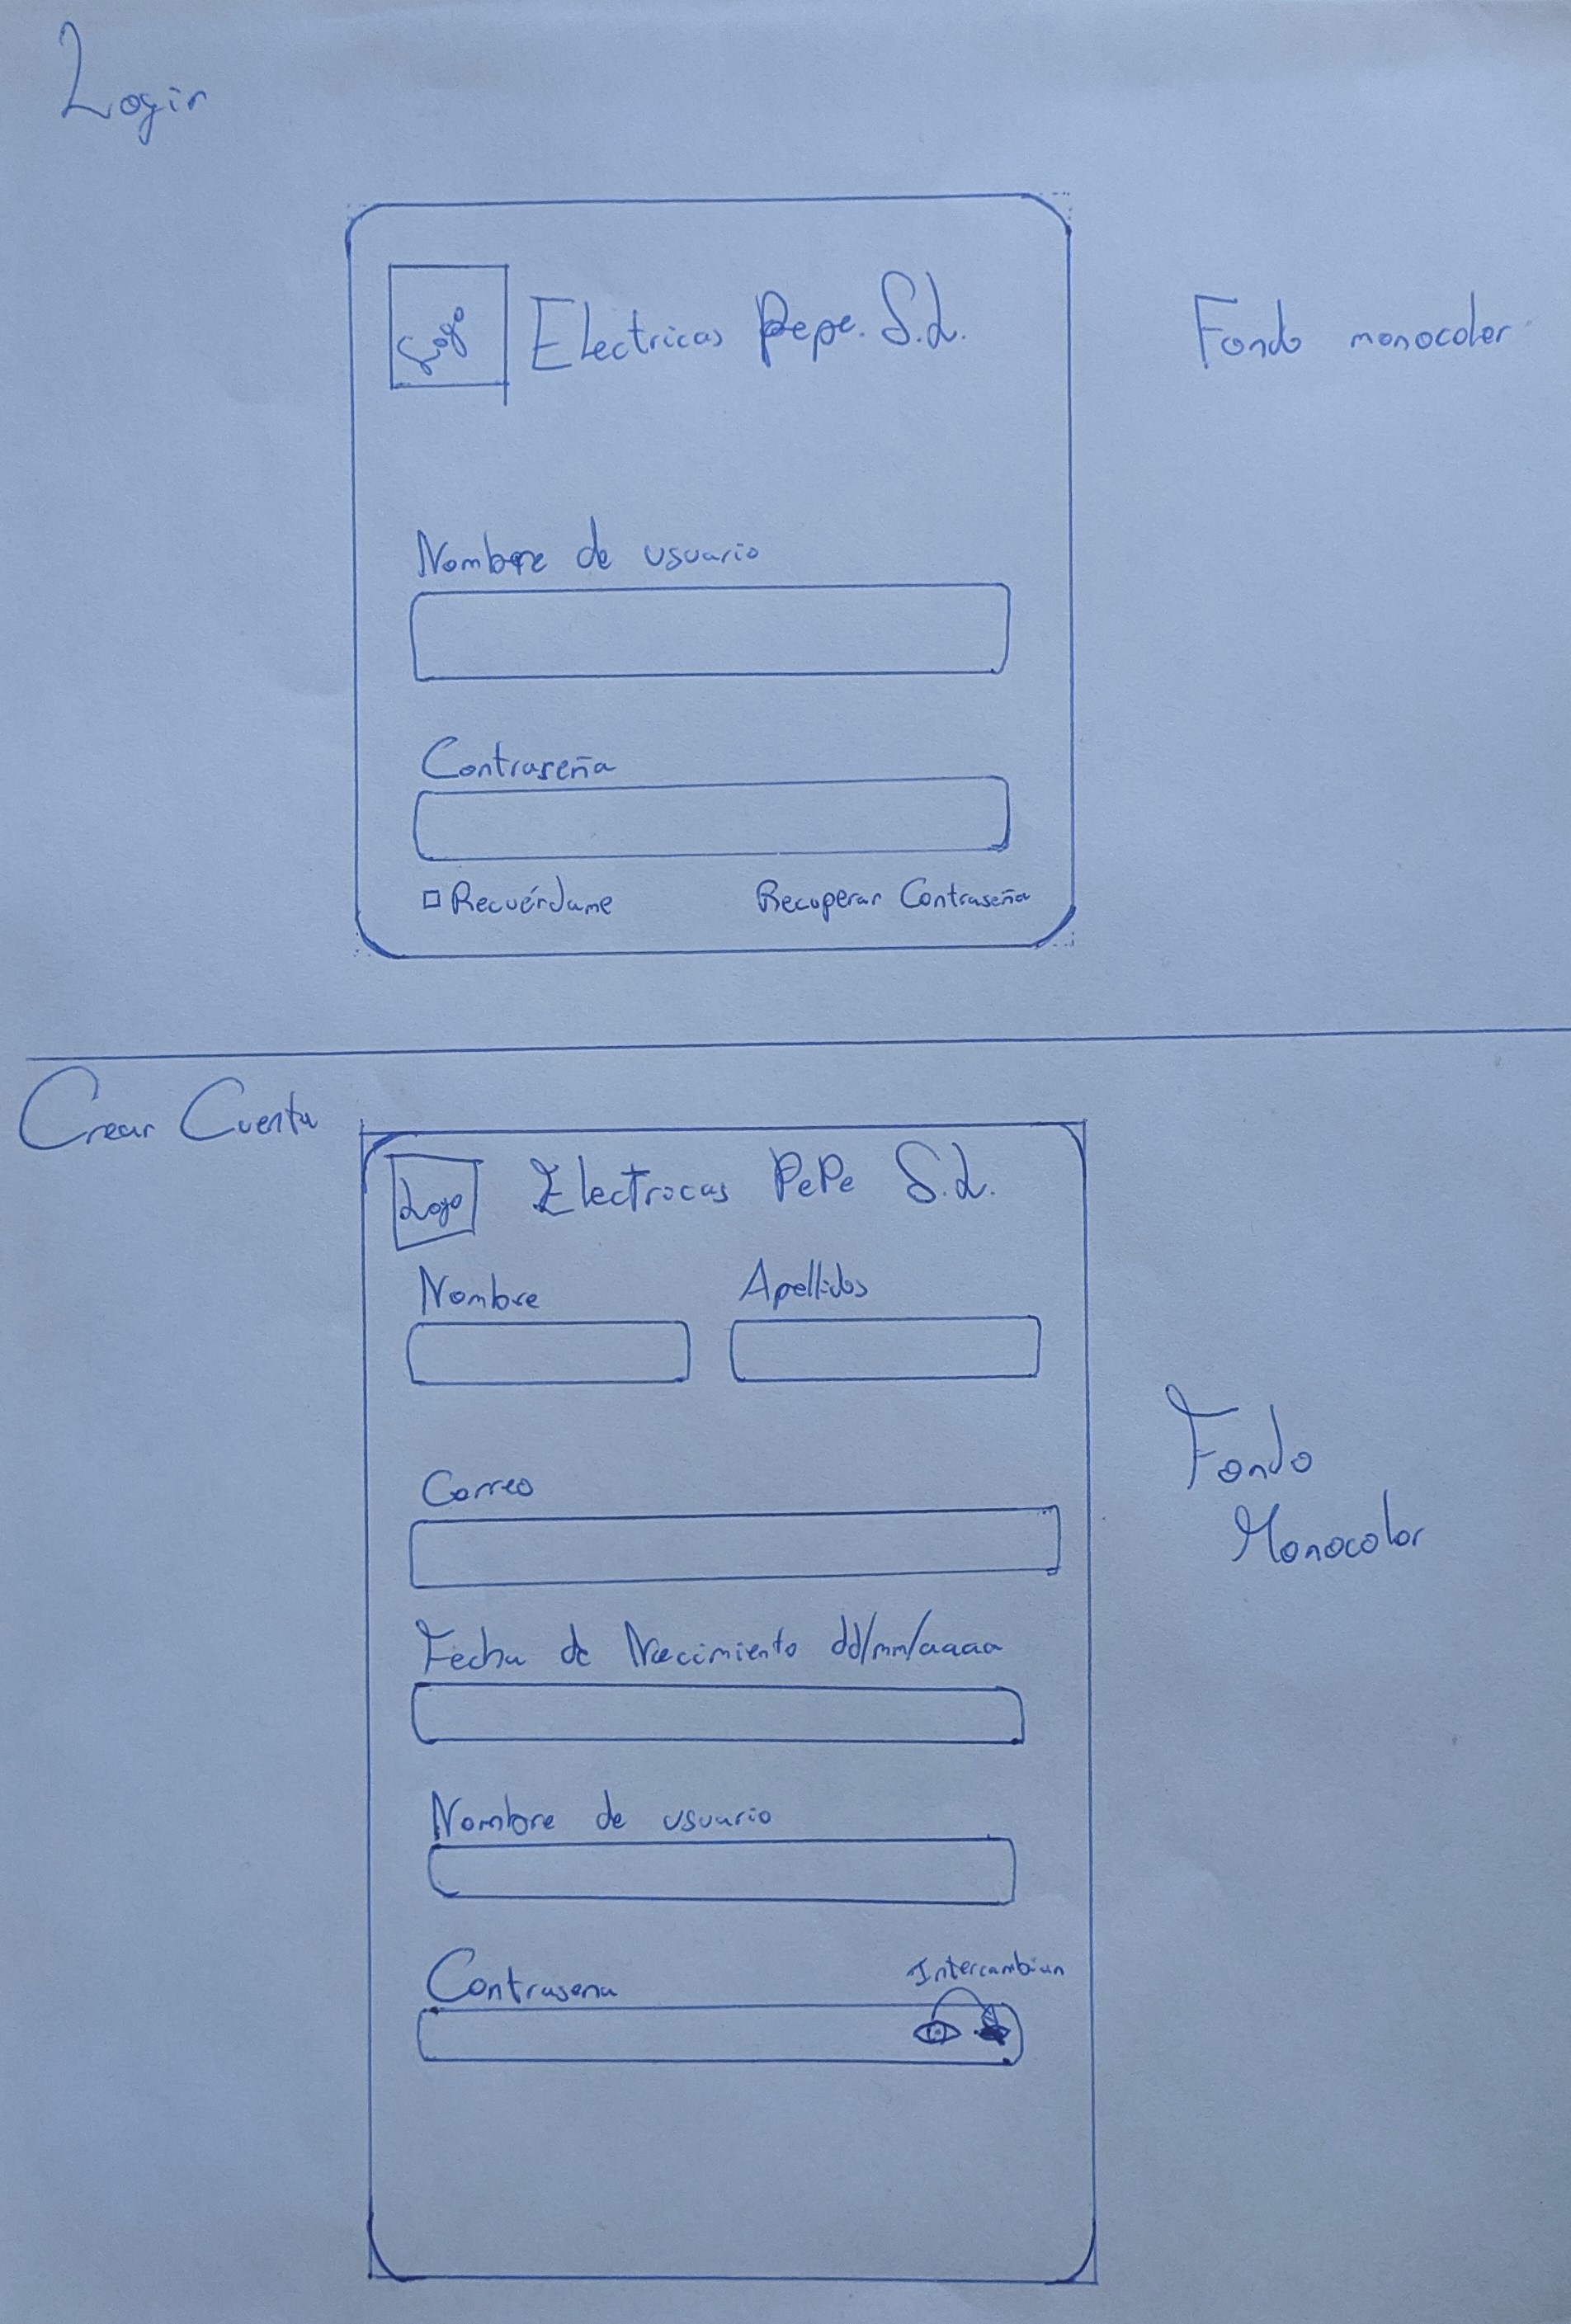 Login
Logo
Electricas Pepe. S.L.
Fondo monocolor
Nombre de usuario
Contraseña
Recuérdame
Recuperar Contraseña
Crear Cuenta
Logo
Electrocas PePe S.L.
Nombre
Apellidos
Correo
Fondo
Monocolor
Fecha de Nacimiento dd/mm/aaaa
Nombre de usuario
Contrasena
Intercambian